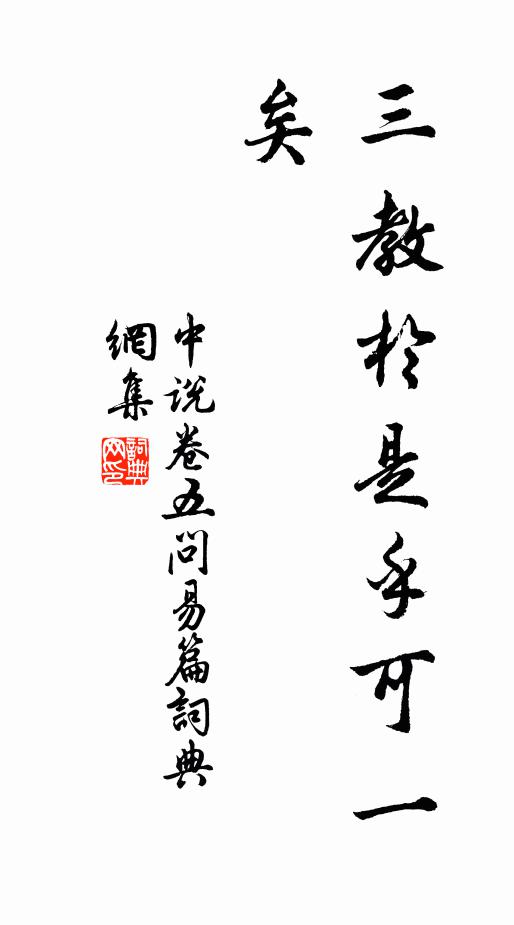 三教於是乎可一
矣
中说卷五問易篇詞典
網集
詞典
网印